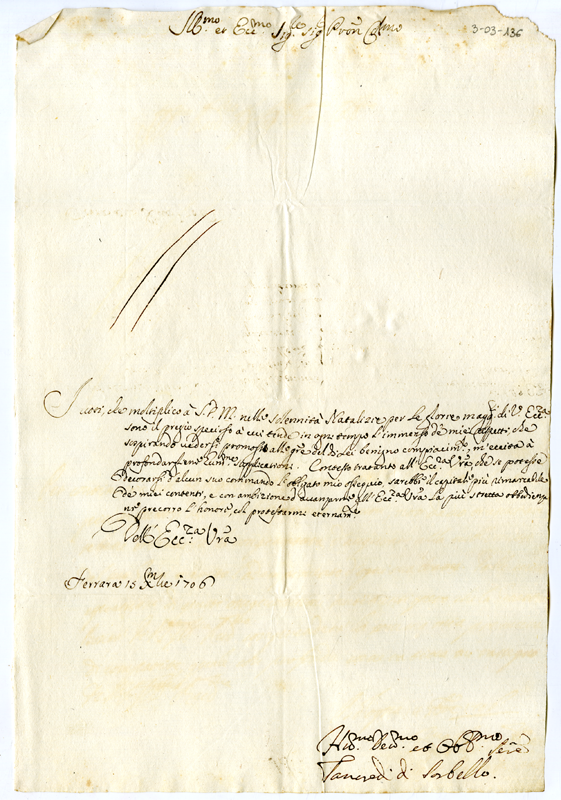 Ill.mo et Ecc.mo Sig.re Sig.r Pron Col.mo
3-03-136
I voti, che moltiplico à S.D.M. nelle solennità Natalizie per le glorie mag.ri di V. Ecc.za
sono il pregio specioso à cui tende in ogni tempo l'immenso de miei rispetti, che
sospirando vedersi promossi alle di Lei benigno compiacim.to, m'eccita à
profondarsene um.me supplicazioni. Contesto tratanto all'Ecc.za Vra, che se potesse
decorarsi d'alcun suo commando l'obligato mio ossequio, sarebbe il capitale più rimarcabile
de miei contenti, e con ambizione d'avanzarme all'Ecc.za Vra la più stretta obbedienza
precorro l'honore di protestarmi eternam.te
Dell'Ecc.za Vra
Ferrara 15 Xbre 1706
Hu.mo Dev.mo et Obb.mo Ser.re
Tancredi di Sorbello.